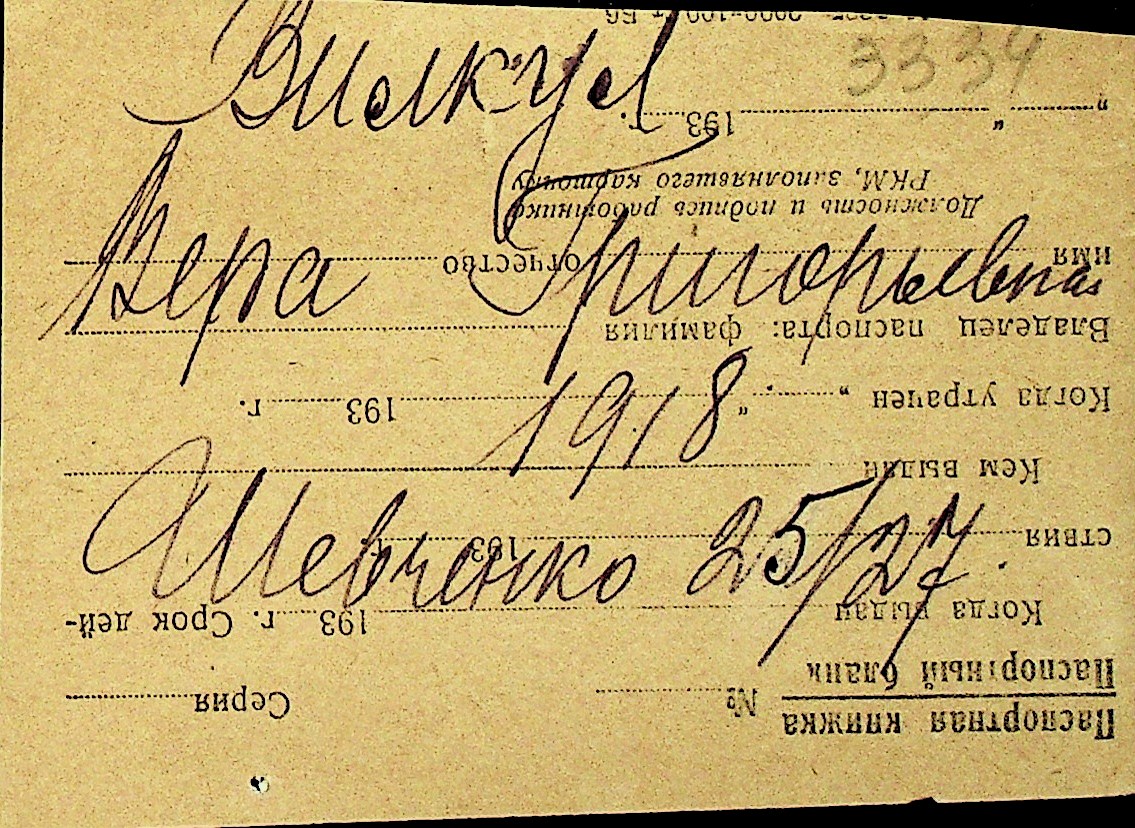 3334
Вилкул
Вера Григорьевна
1918
Шевченко 25/27.
Паспортная книжка
Паспортный бланк
№ Серия
Когда выдан 193 г. Срок дей-
ствия 193 г.
Кем выдан
Когда утрачен „ “ 193 г.
Владелец паспорта: фамилия
имя отчество
Должность и подпись работника
РКМ, заполнявшего карточку
„ “ 193 г.